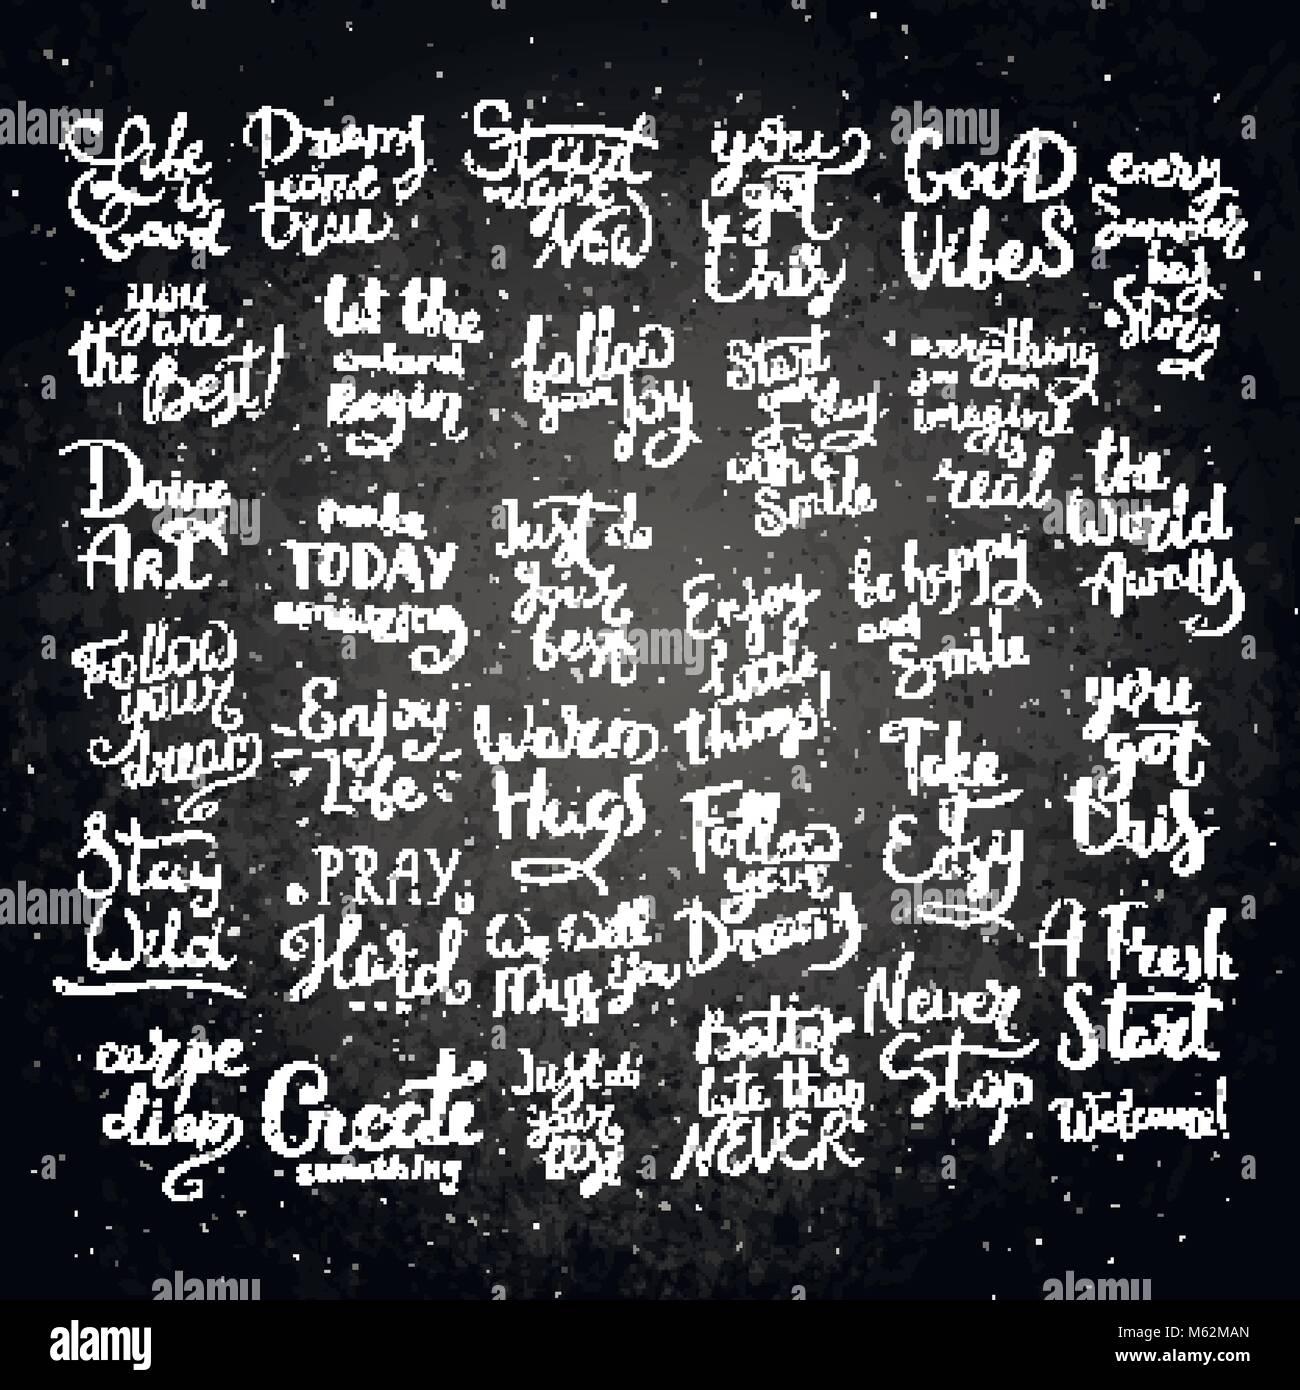 Life
is
Good
Dreams
come
true
Start
New
you
got
this
GOOD
VIBES
every
summer
has
Story
you
are
the
Best!
let the
weekend
Begin
follow
your
joy
Start
every day
with a
Smile
everything
you can
imagine
is
real
the
World
Awaits
Doing
ART
make
TODAY
amazing
Just do
your
best
Enjoy
little
things!
be happy
and
Smile
Follow
your
dream
Enjoy
Life
Warm
Hugs
Take
it
Easy
you
got
this
Stay
Wild
PRAY
Hard
We Will
Miss You
Follow
your
Dreams
Never
Stop
A Fresh
Start
carpe
diem
Create
something
Just do
your
best
Better
late than
NEVER
Welcome!
alamy
Image ID: M62MAN
www.alamy.com